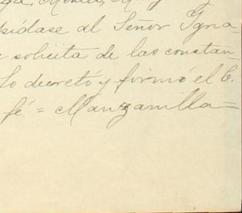 pídase al Señor Igna-
solicita de las constan-
lo decretó y firmó el C.
fé = Manzanilla =